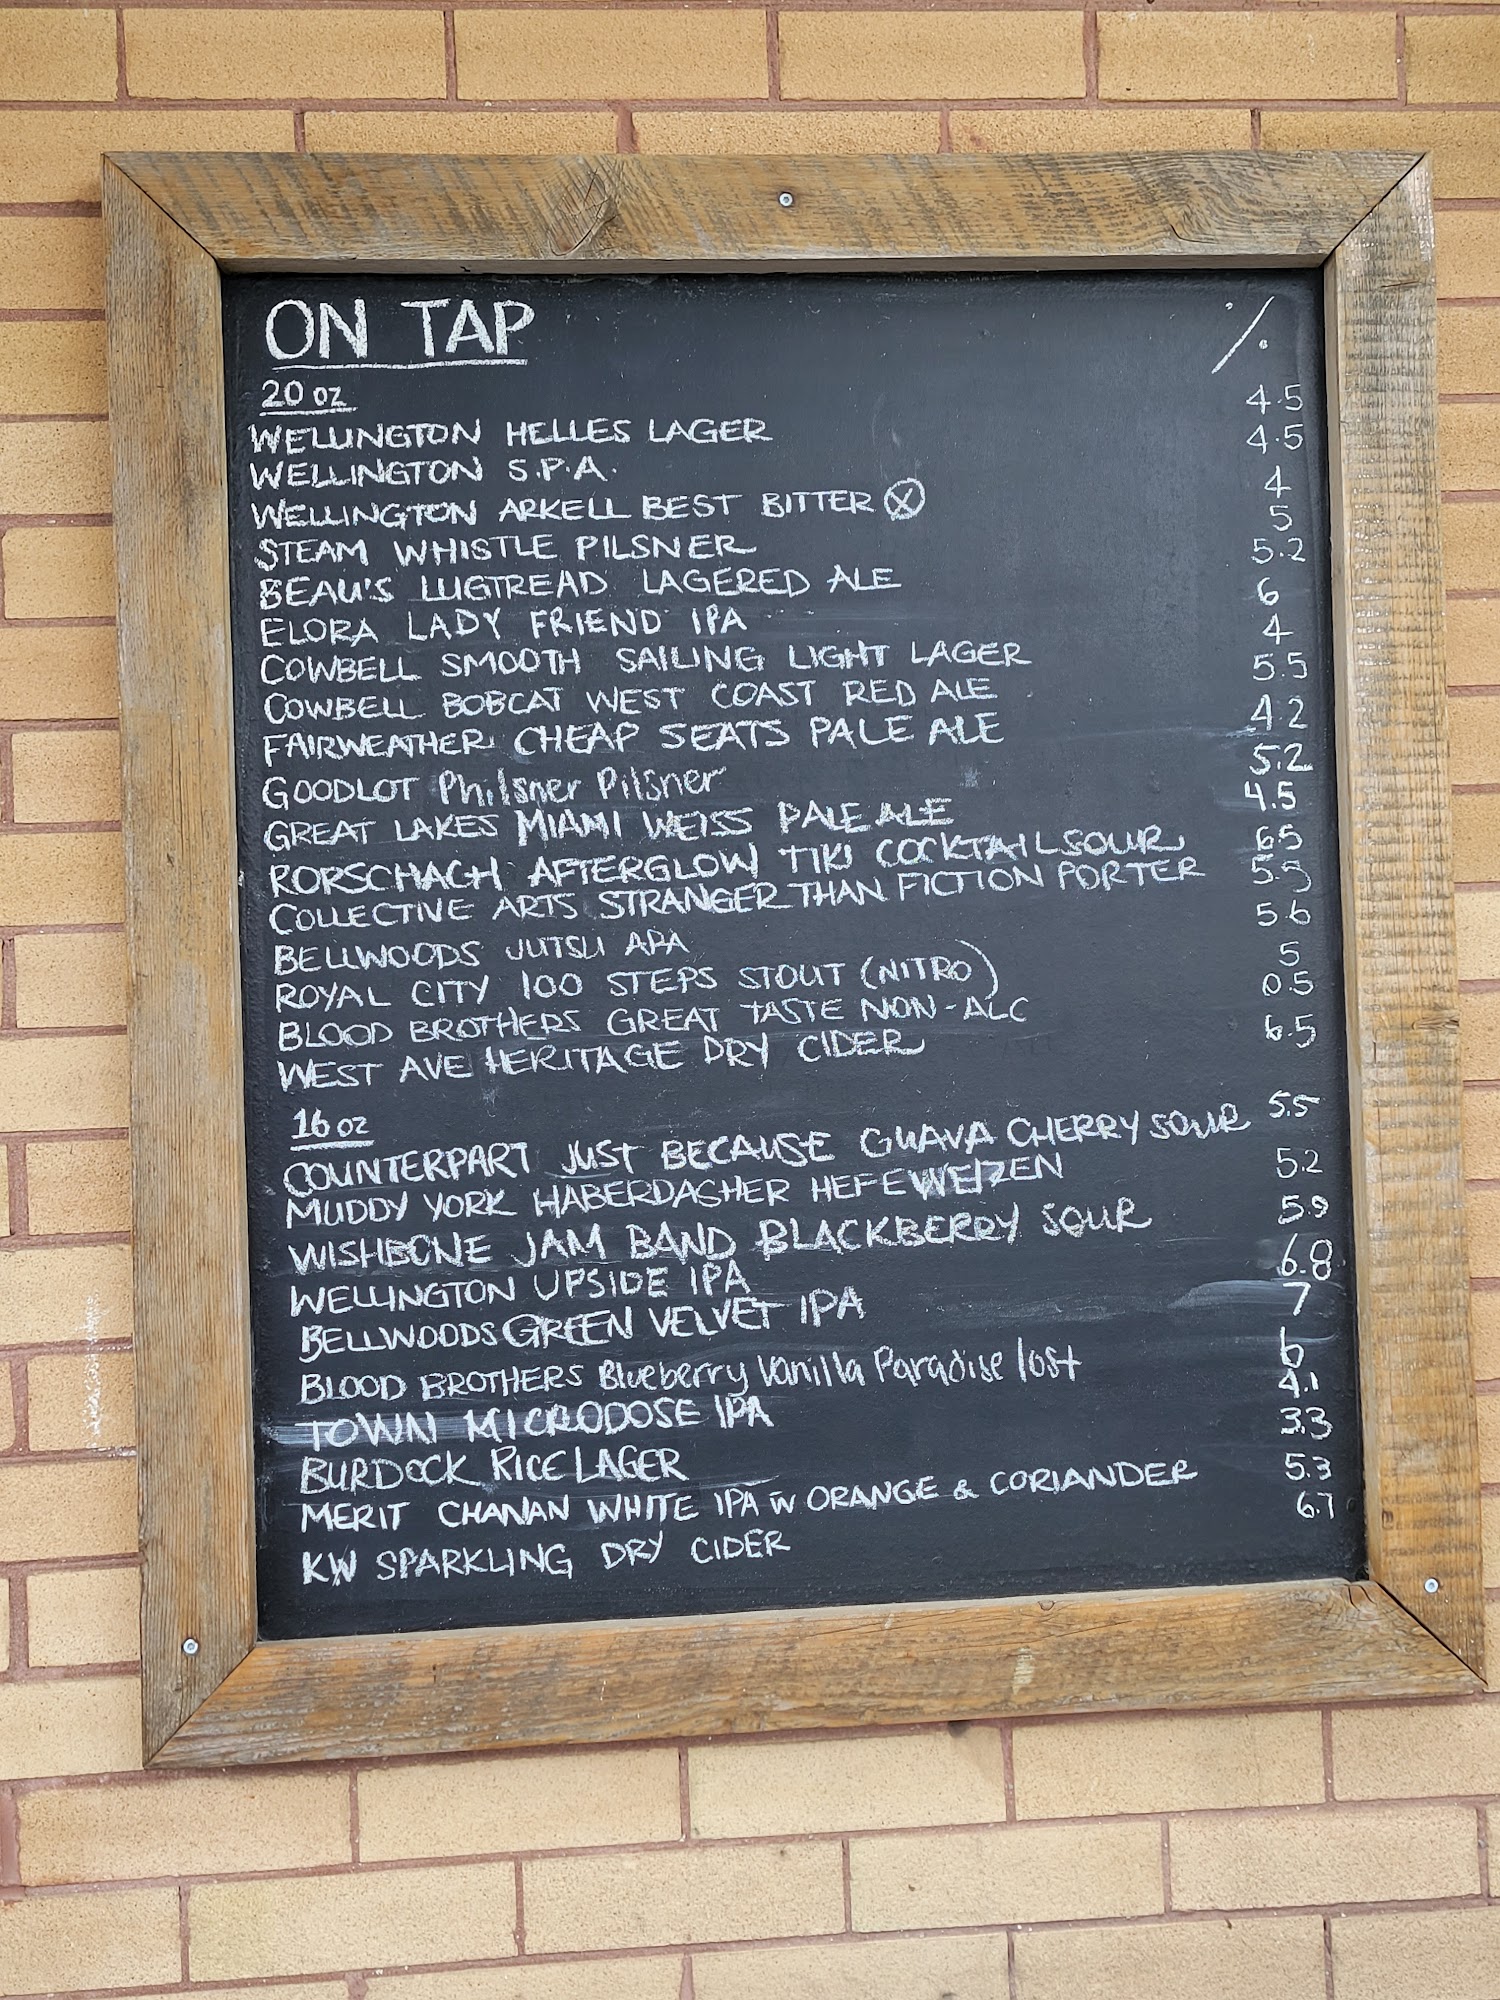 ON TAP %
20 oz
WELLINGTON HELLES LAGER 4.5
WELLINGTON S.P.A. 4.5
WELLINGTON ARKELL BEST BITTER ⓧ 4
STEAM WHISTLE PILSNER 5
BEAU'S LUGTREAD LAGERED ALE 5.2
ELORA LADY FRIEND IPA 6
COWBELL SMOOTH SAILING LIGHT LAGER 4
COWBELL BOBCAT WEST COAST RED ALE 5.5
FAIRWEATHER CHEAP SEATS PALE ALE 4.2
GOODLOT Philsner Pilsner 5.2
GREAT LAKES MIAMI WEISS PALE ALE 4.5
RORSCHACH AFTERGLOW TIKI COCKTAIL SOUR 6.5
COLLECTIVE ARTS STRANGER THAN FICTION PORTER 5.5
BELLWOODS JUTSU APA 5.6
ROYAL CITY 100 STEPS STOUT (NITRO) 5
BLOOD BROTHERS GREAT TASTE NON-ALC 0.5
WEST AVE HERITAGE DRY CIDER 6.5
16 oz
COUNTERPART JUST BECAUSE GUAVA CHERRY SOUR 5.5
MUDDY YORK HABERDASHER HEFEWEIZEN 5.2
WISHBONE JAM BAND BLACKBERRY SOUR 5.9
WELLINGTON UPSIDE IPA 6.8
BELLWOODS GREEN VELVET IPA 7
BLOOD BROTHERS Blueberry Vanilla Paradise lost 6
TOWN MICRODOSE IPA 4.1
BURDOCK RICE LAGER 3.3
MERIT CHANAN WHITE IPA w ORANGE & CORIANDER 5.3
KW SPARKLING DRY CIDER 6.7